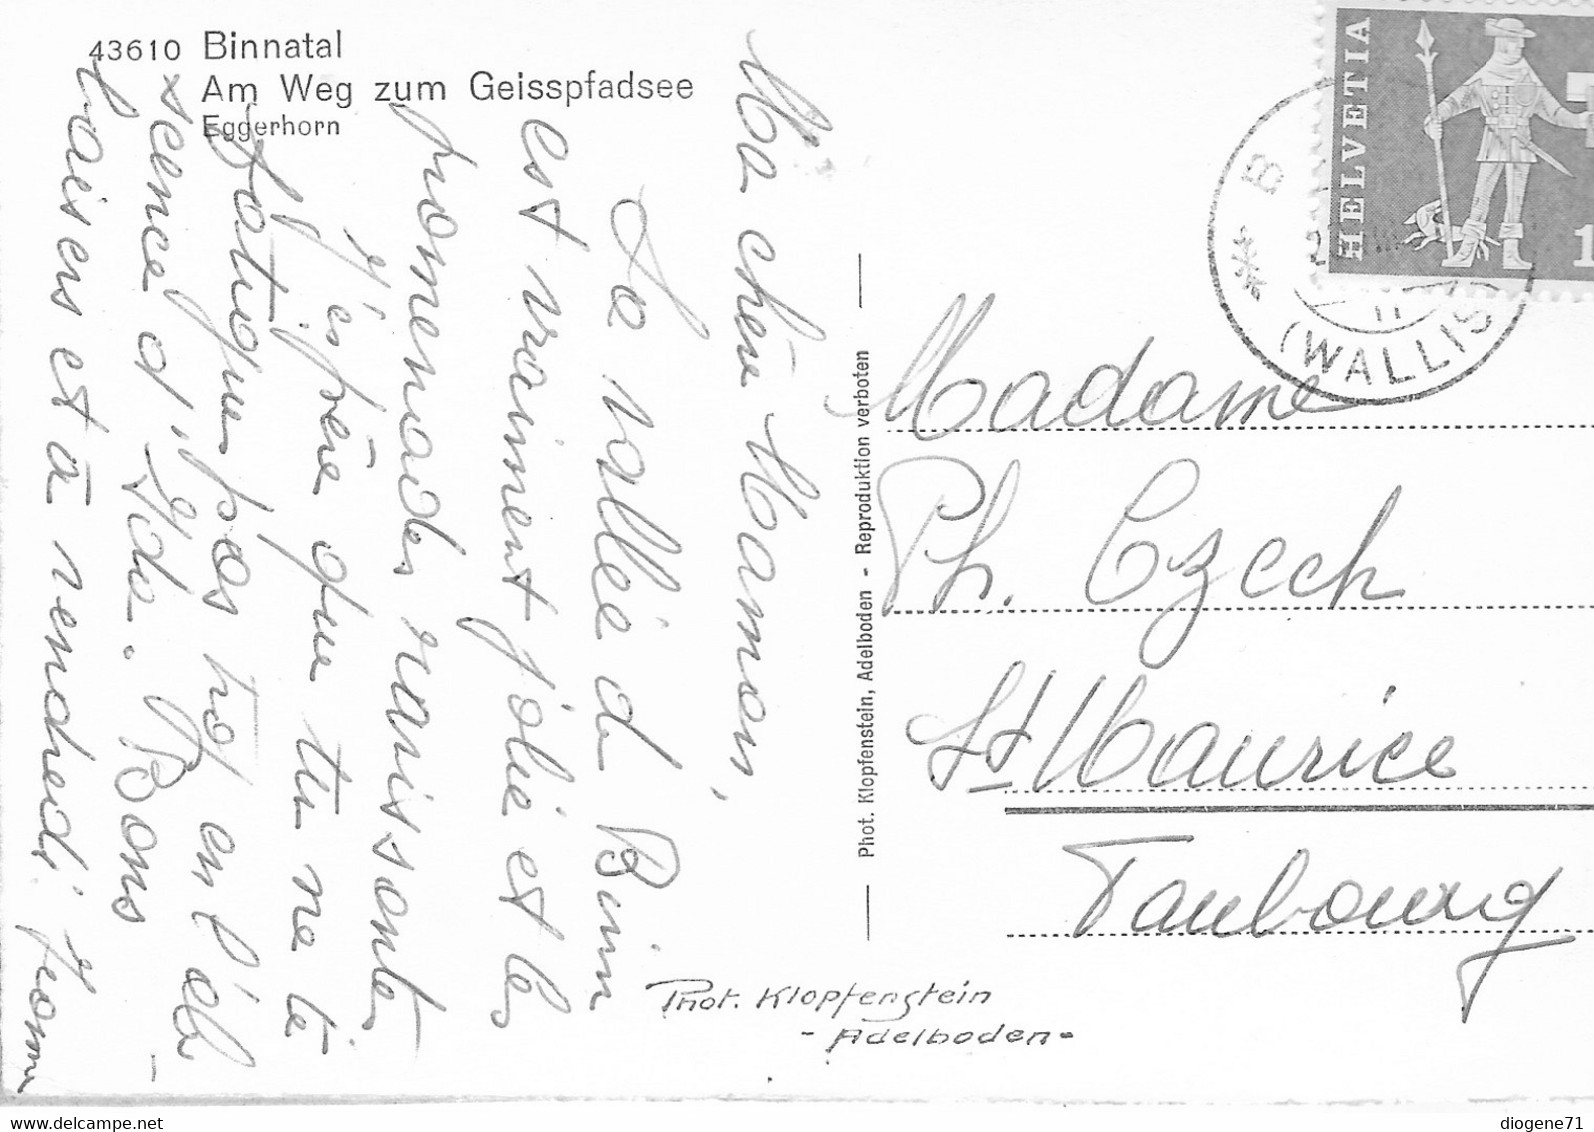 43610 Binnatal
Am Weg zum Geisspfadsee
Eggerhorn
Ma chère Maman,
La vallée de Binn
est vraiment jolie et les
promenades ravissantes
J'espère que tu ne te
fatigues pas trop en l'ab-
sence d'"Ida. Bons
baisers et à vendredi.
Phot. Klopfenstein, Adelboden - Reproduktion verboten
HELVETIA
1
B
(WALLIS)
Madame
Ph. Czech
St Maurice
Faubourg
Phot. Klopfenstein
- Adelboden -
diogene71